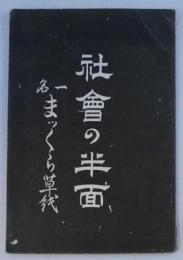 社會の半面
一名まッくら草紙